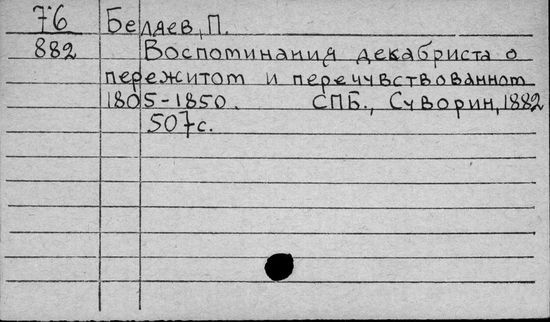 76 Беляев, П.
882 Воспоминания декабриста о
пережитом и перечувствованном
1805-1850. СПБ., Суворин, 1882
507с.